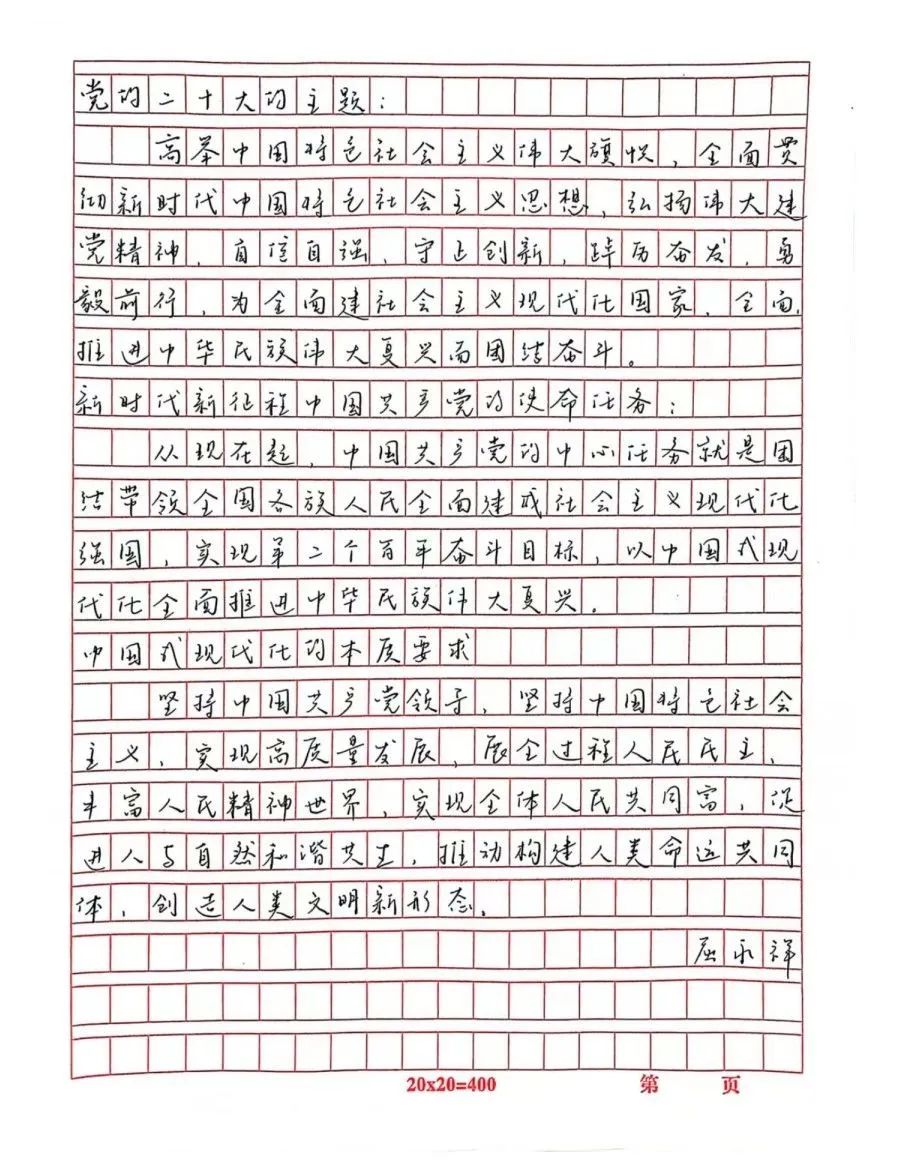 党的二十大的主题：
高举中国特色社会主义伟大旗帜，全面贯
彻新时代中国特色社会主义思想，弘扬伟大建
党精神，自信自强、守正创新，踔厉奋发、勇
毅前行，为全面建社会主义现代化国家、全面
推进中华民族伟大复兴而团结奋斗。
新时代新征程中国共产党的使命任务：
从现在起，中国共产党的中心任务就是团
结带领全国各族人民全面建成社会主义现代化
强国，实现第二个百年奋斗目标，以中国式现
代化全面推进中华民族伟大复兴。
中国式现代化的本质要求
坚持中国共产党领导，坚持中国特色社会
主义，实现高质量发展，展全过程人民民主，
丰富人民精神世界，实现全体人民共同富，促
进人与自然和谐共生，推动构建人类命运共同
体，创造人类文明新形态。
屈永祥
20x20=400 第 页